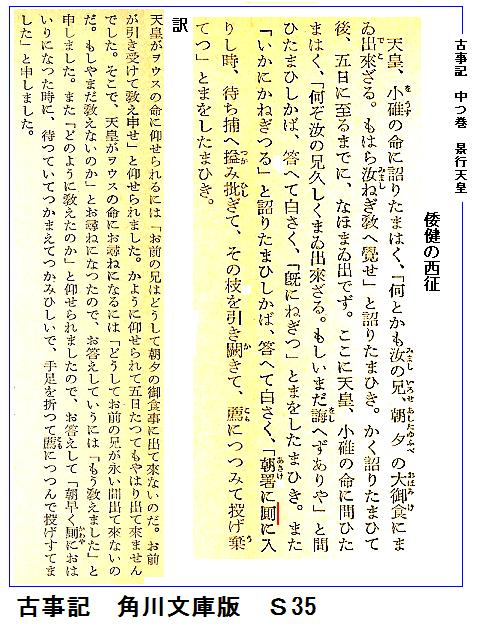 古事記　中つ巻　景行天皇
倭健の西征
天皇、小碓の命に詔りたまはく、「何とかも汝の兄、朝夕の大御食にま
ゐ出來ざる。もはら汝ねぎ敎へ覺せ」と詔りたまひき。かく詔りたまひて
後、五日に至るまでに、なほまゐ出でず。ここに天皇、小碓の命に問ひた
まはく、「何ぞ汝の兄久しくまゐ出來ざる。もしいまだ誨へずありや」と問
ひたまひしかば、答へて白さく、「既にねぎつ」とまをしたまひき。また
「いかにかねぎつる」と詔りたまひしかば、答へて白さく、「朝署に厠に入
りし時、待ち捕へ搤み批ぎて、その枝を引き闕きて、薦につつみて投げ棄
てつ」とまをしたまひき。
訳
天皇がヲウスの命に仰せられるには「お前の兄はどうして朝夕の御食事に出て來ないのだ。お前
が引き受けて敎え申せ」と仰せられました。かように仰せられて五日たつてもやはり出て來ません
でした。そこで、天皇がヲウスの命にお尋ねになるには「どうしてお前の兄が永い間出て來ないの
だ。もしやまだ敎えないのか」とお尋ねになつたので、お答えしていうには「もう敎えました」と
申しました。また「どのように敎えたのか」と仰せられましたので、お答えして「朝早く厠におは
いりになつた時に、待つていてつかまえてつかみひしいで、手足を折つて薦につつんで投げすてま
した」と申しました。
古事記　角川文庫版　Ｓ35